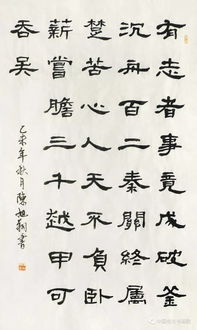 有志者事竟成破釜
沉舟百二秦關終屬
楚苦心人天不負卧
薪嘗膽三千越甲可
吞吴
乙未年秋月陳旭書